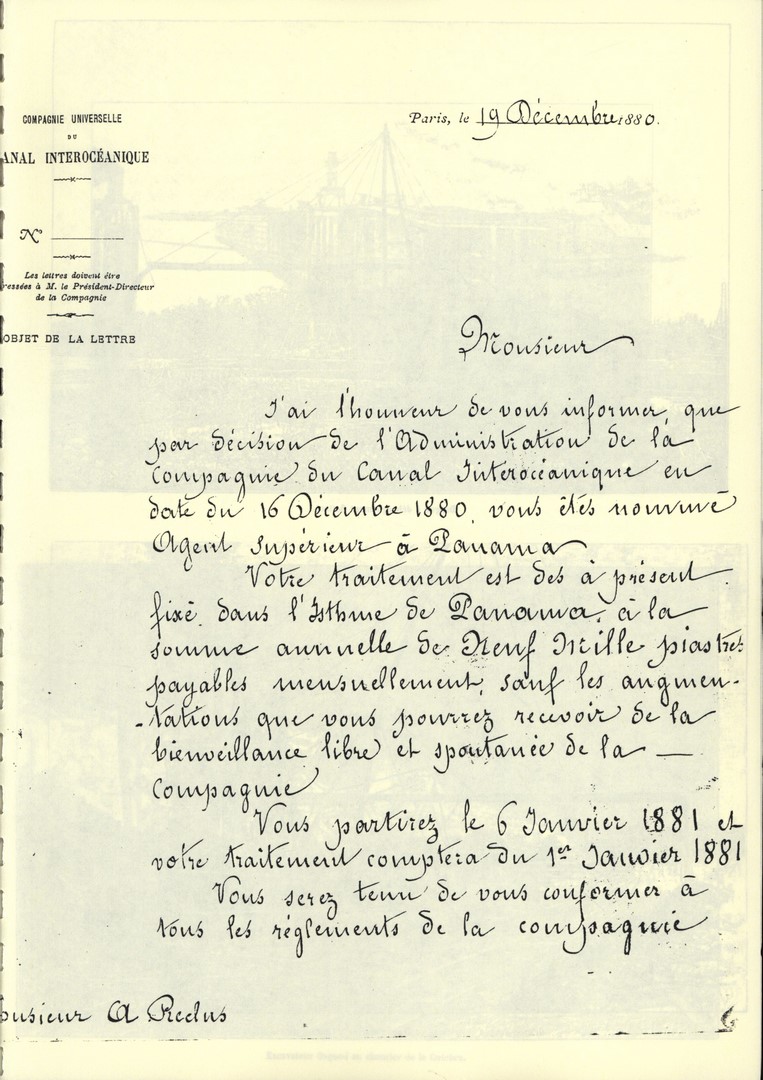 COMPAGNIE UNIVERSELLE
DU
ANAL INTEROCÉANIQUE
Paris, le 19 Décembre 1880.
N°
Les lettres doivent être
ressées à M. le Président-Directeur
de la Compagnie
OBJET DE LA LETTRE
Monsieur
J'ai l'honneur de vous informer, que
par décision de l'Administration de la
Compagnie du Canal Interocéanique en
date du 16 Décembre 1880, vous êtes nommé
Agent Supérieur à Panama
Votre traitement est des à présent
fixé dans l'Isthme de Panama, à la
somme annuelle de Neuf Mille piastres
payables mensuellement, sauf les augmen-
-tations que vous pourrez recevoir de la
bienveillance libre et spontanée de la —
Compagnie
Vous partirez le 6 Janvier 1881 et
votre traitement comptera du 1er Janvier 1881
Vous serez tenu de vous conformer à
tous les réglements de la compagnie
onsieur A Reclus